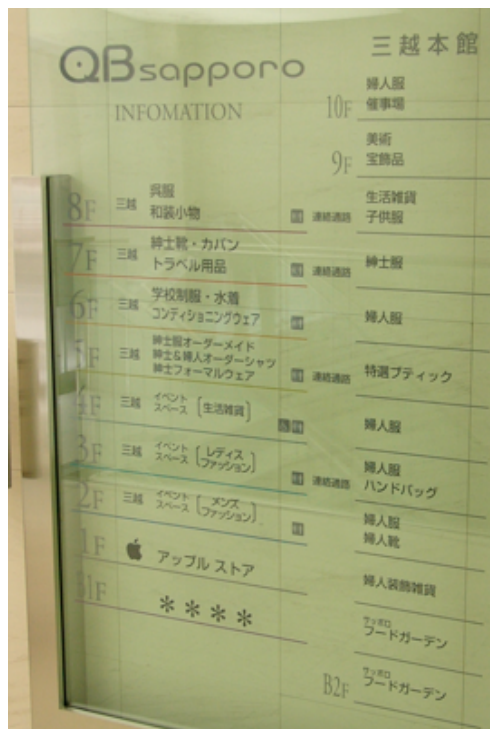 QBsapporo
INFOMATION
三越本館
10F 婦人服
催事場
9F 美術
宝飾品
8F 三越 呉服
和装小物
連絡通路 生活雑貨
子供服
7F 三越 紳士靴・カバン
トラベル用品
連絡通路 紳士服
6F 三越 学校制服・水着
コンディショニングウェア
婦人服
5F 三越 紳士服オーダーメイド
紳士&婦人オーダーシャツ
紳士フォーマルウェア
連絡通路 特選ブティック
4F 三越 イベント
スペース [生活雑貨]
婦人服
3F 三越 イベント
スペース [レディス
ファッション]
連絡通路 婦人服
ハンドバッグ
2F 三越 イベント
スペース [メンズ
ファッション]
婦人服
婦人靴
1F アップル ストア
婦人装飾雑貨
B1F ****
サッポロ
フードガーデン
B2F サッポロ
フードガーデン